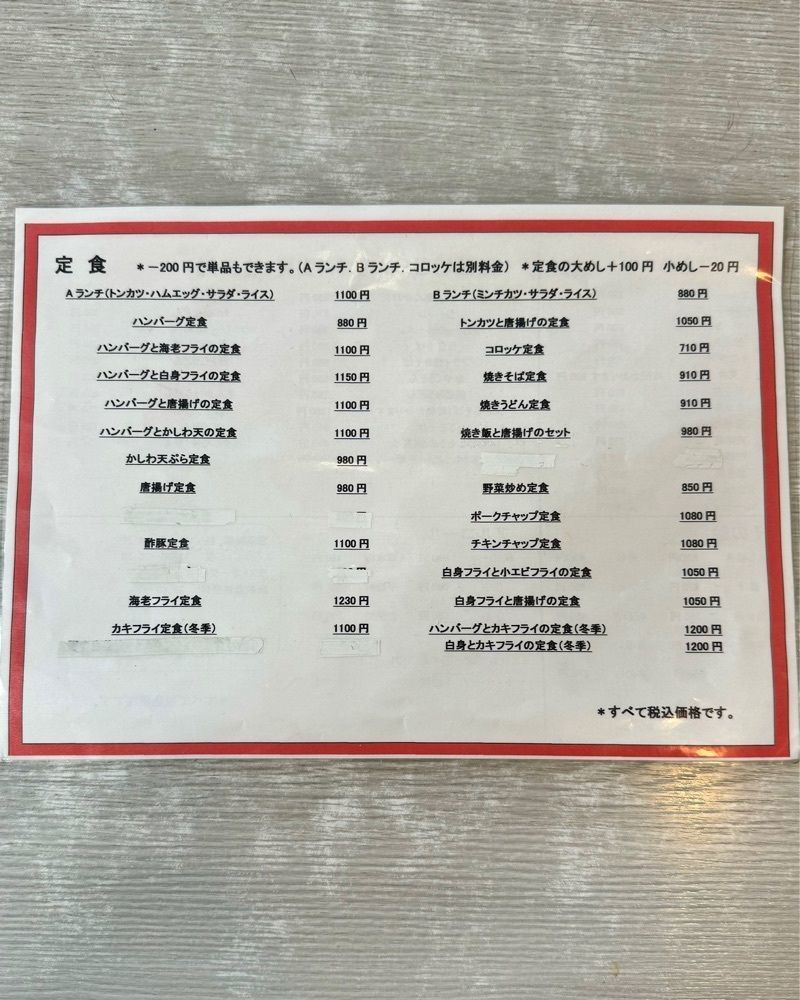 定食 ＊－200円で単品もできます。（Aランチ．Bランチ．コロッケは別料金） ＊定食の大めし＋100円 小めし－20円
Aランチ（トンカツ・ハムエッグ・サラダ・ライス） 1100円
ハンバーグ定食 880円
ハンバーグと海老フライの定食 1100円
ハンバーグと白身フライの定食 1150円
ハンバーグと唐揚げの定食 1100円
ハンバーグとかしわ天の定食 1100円
かしわ天ぷら定食 980円
唐揚げ定食 980円
酢豚定食 1100円
海老フライ定食 1230円
カキフライ定食（冬季） 1100円
Bランチ（ミンチカツ・サラダ・ライス） 880円
トンカツと唐揚げの定食 1050円
コロッケ定食 710円
焼きそば定食 910円
焼きうどん定食 910円
焼き飯と唐揚げのセット 980円
野菜炒め定食 850円
ポークチャップ定食 1080円
チキンチャップ定食 1080円
白身フライと小エビフライの定食 1050円
白身フライと唐揚げの定食 1050円
ハンバーグとカキフライの定食（冬季） 1200円
白身とカキフライの定食（冬季） 1200円
＊すべて税込価格です。